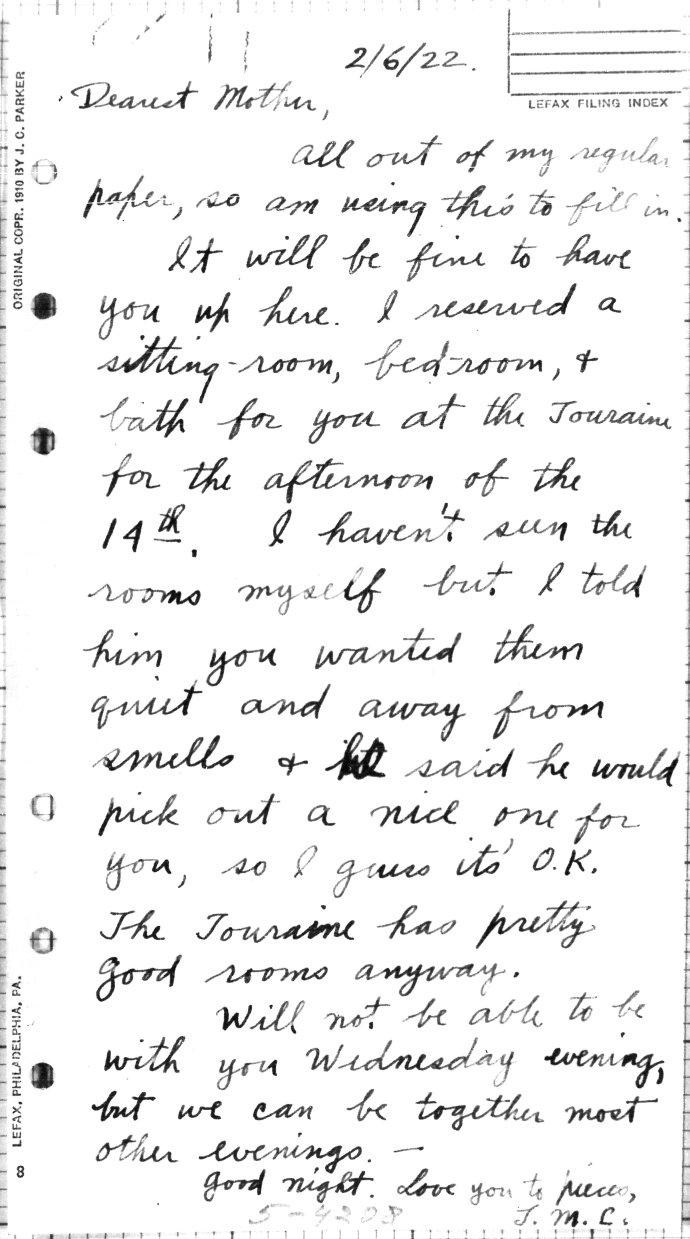 2/6/22.
LEFAX FILING INDEX
ORIGINAL COPR. 1910 BY J. C. PARKER
Dearest Mother,
All out of my regular
paper, so am using this to fill in.
It will be fine to have
you up here. I reserved a
sitting-room, bed-room, &
bath for you at the Touraine
for the afternoon of the
14th. I haven't seen the
rooms myself but I told
him you wanted them
quiet and away from
smells & he said he would
pick out a nice one for
you, so I guess it's O.K.
The Touraine has pretty
good rooms anyway.
Will not be able to be
with you Wednesday evening,
but we can be together most
other evenings. —
Good night. Love you to pieces,
J. M. C.
5-4208
LEFAX, PHILADELPHIA, PA.
8